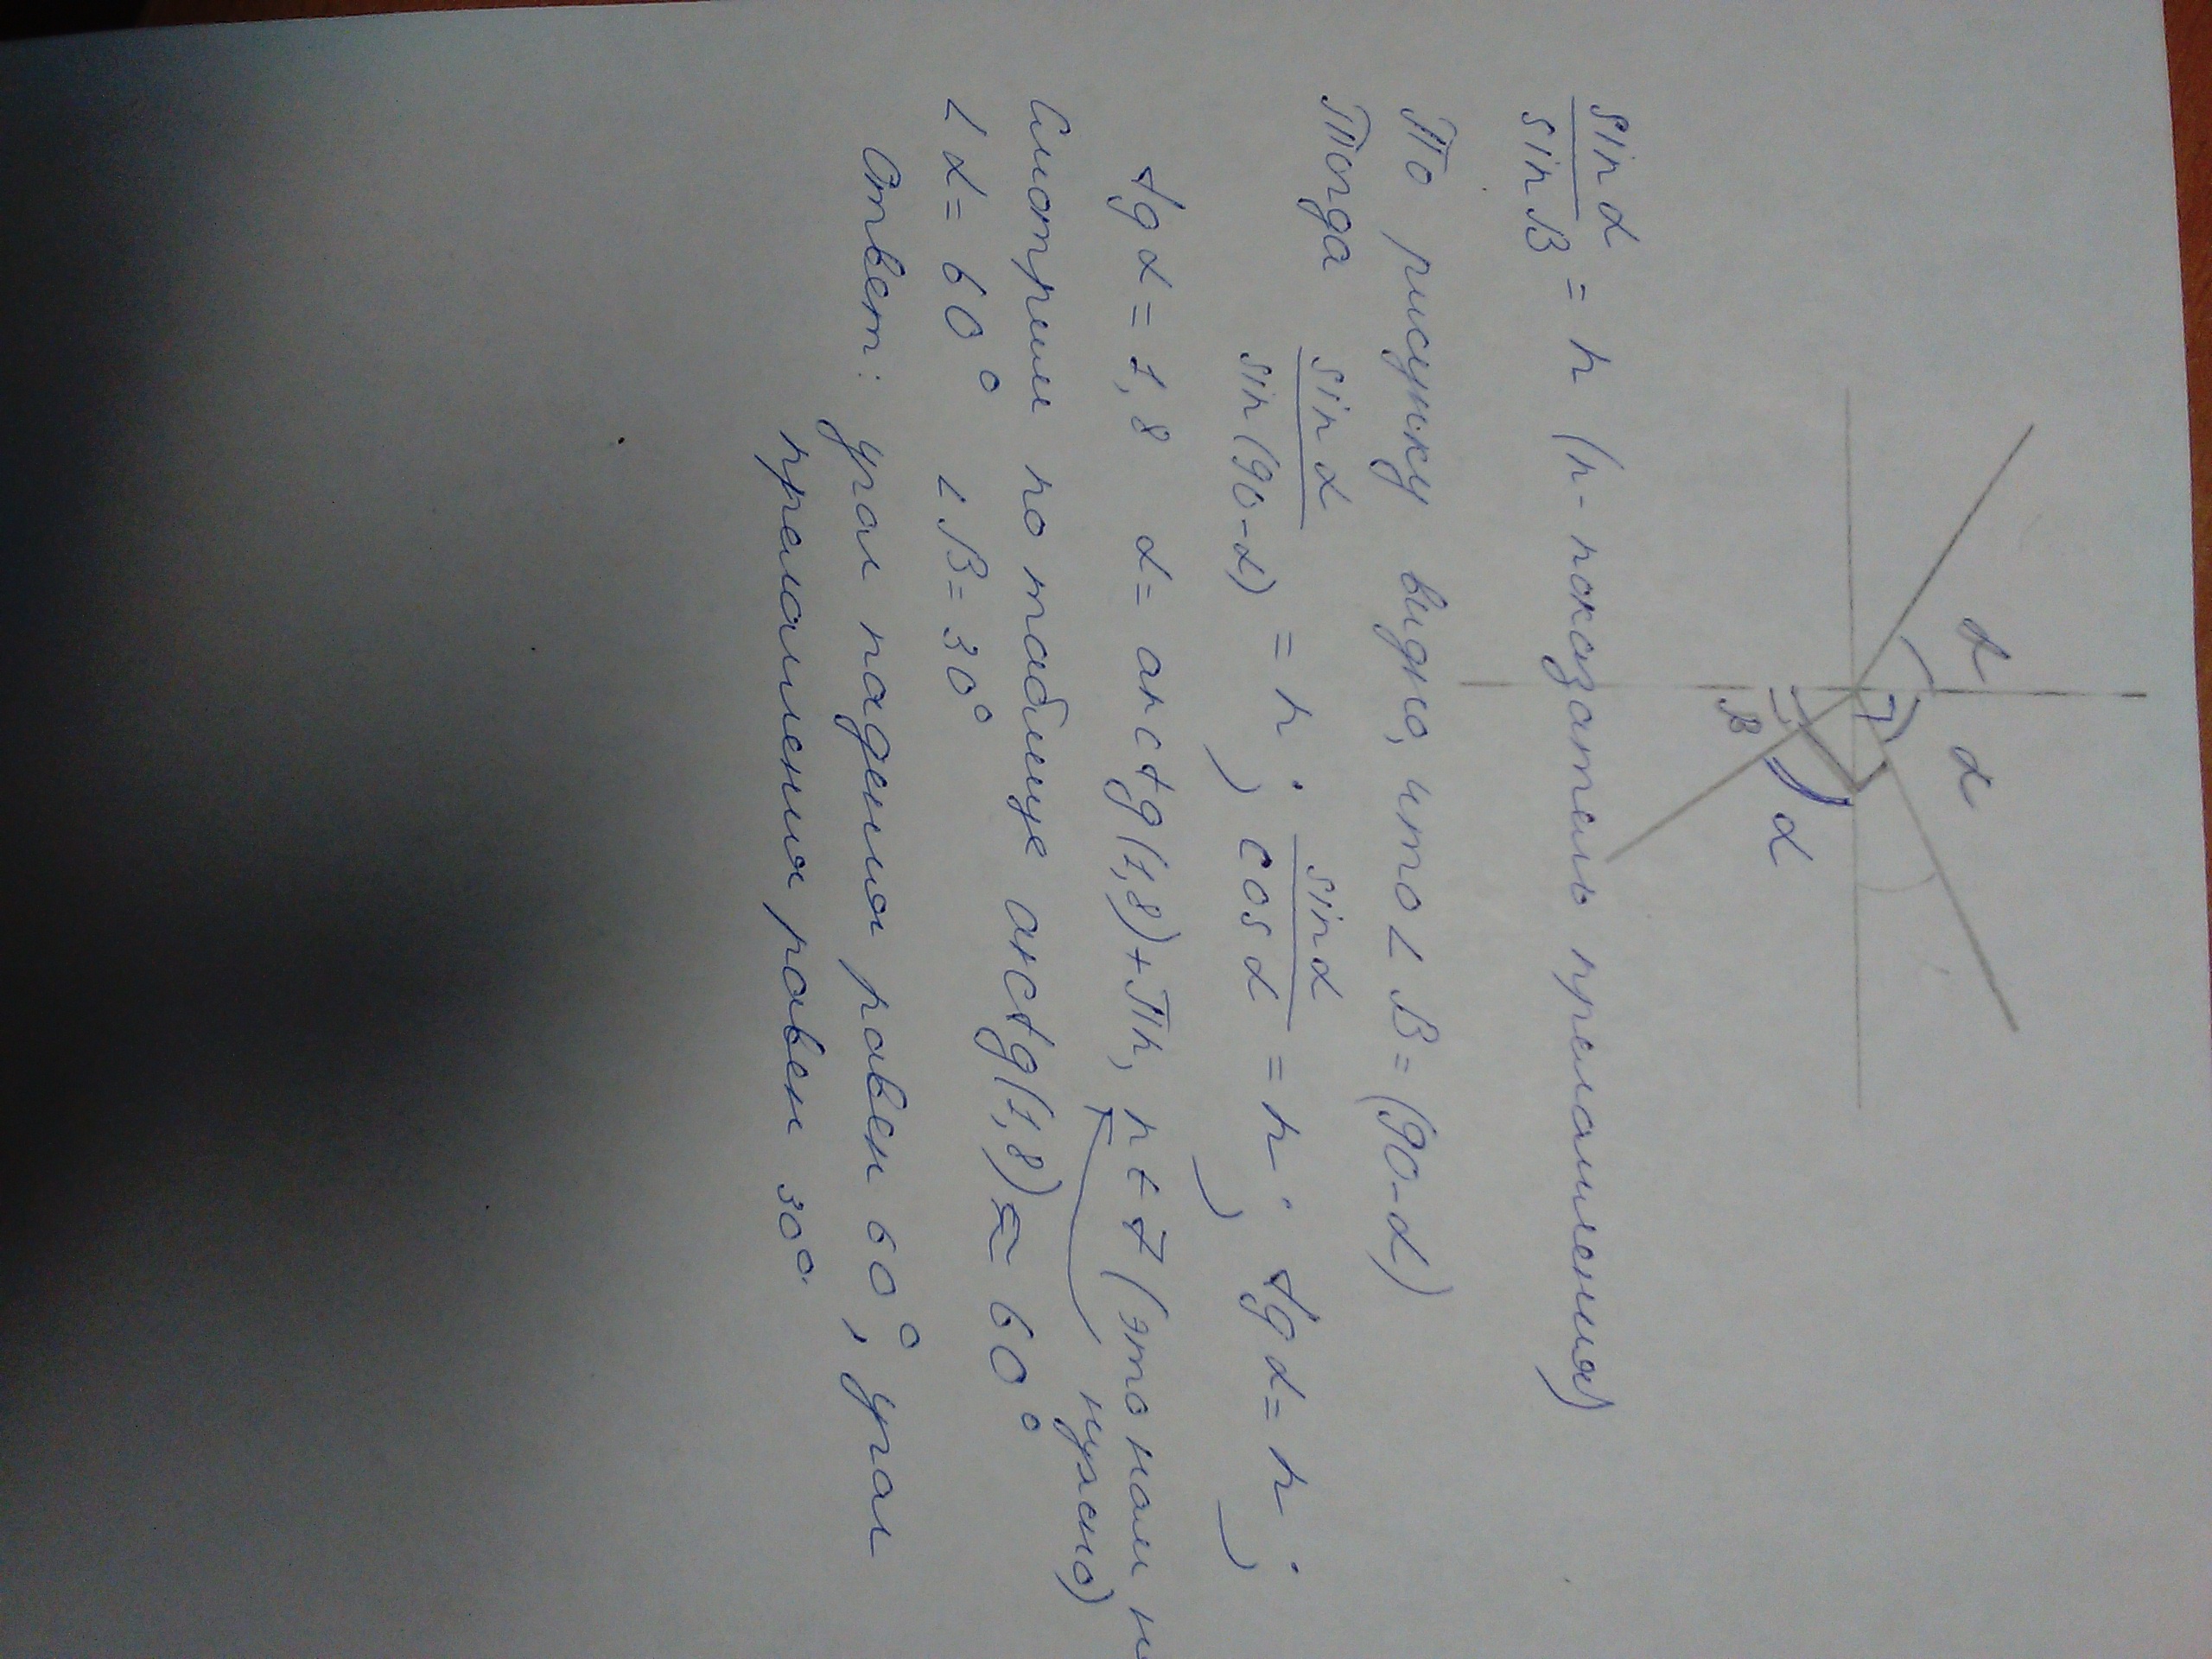 α α
β α
sin α / sin β = n (n - показатель преламления)
По рисунку видно, что ∠β = (90-α)
Тогда sin α / sin(90-α) = n; sin α / cos α = n; tg α = n;
tg α = 1,8 α = arctg(1,8)+Πn, n ∈ Z (это нам не
нужно)
Смотрим по таблице arctg(1,8) ≈ 60°
∠α = 60° ∠β = 30°
Ответ: угол падения равен 60°, угол
преламления равен 30°.